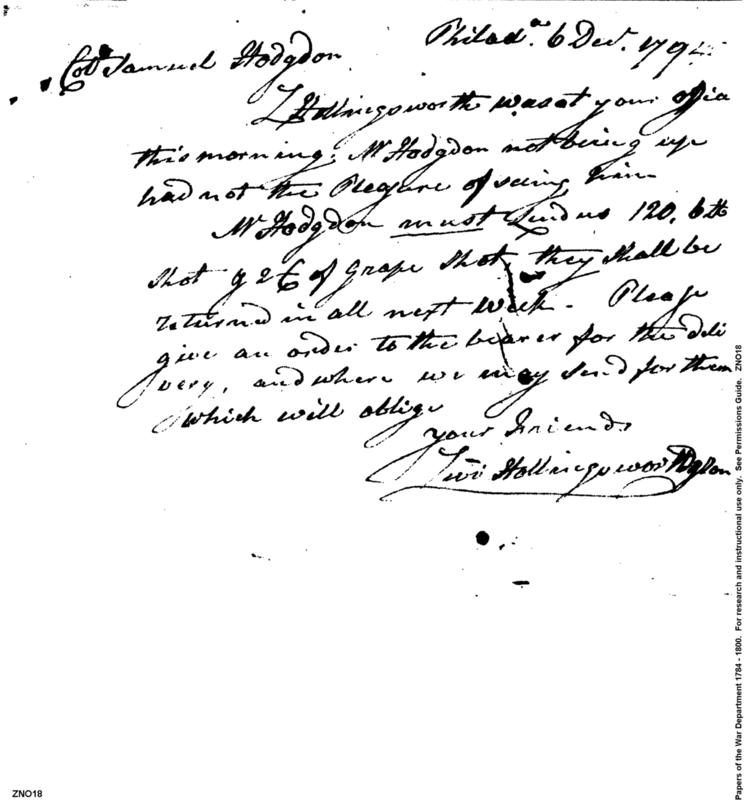 Philada. 6 Decr. 1794
Coll Samuel Hodgdon
L Hollingsworth was at your office
this morning, Mr Hodgdon not being up
had not the Pleasure of seeing him
Mr Hodgdon must send us 120, 6 lb
Shot & of Grape Shot, they shall be
returned in all next Week. Please
give an order to the bearer for the deli
very, and where we may send for them
which will oblige
your Friends
Levi Hollingsworth & Son
Papers of the War Department 1784 - 1800. For research and instructional use only. See Permissions Guide. ZNO18
ZNO18